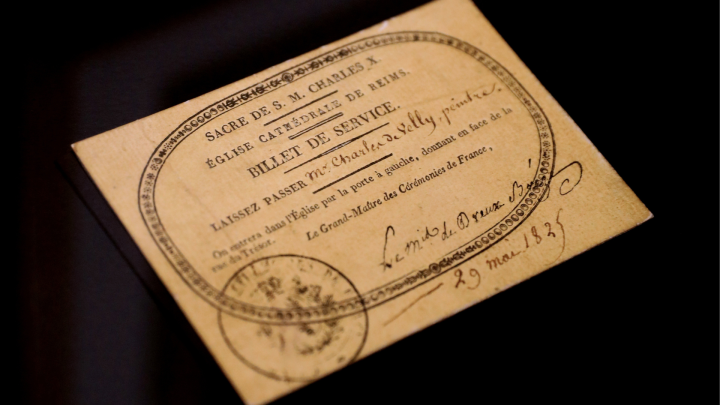 SACRE DE S. M. CHARLES X.
ÉGLISE CATHÉDRALE DE REIMS.
BILLET DE SERVICE.
LAISSEZ PASSER Mr. Charles de Velly, peintre.
On entrera dans l'Église par la porte à gauche, donnant en face de la
rue du Trésor.
Le Grand-Maître des Cérémonies de France,
Le mis de Dreux Brézé
29 mai 1825